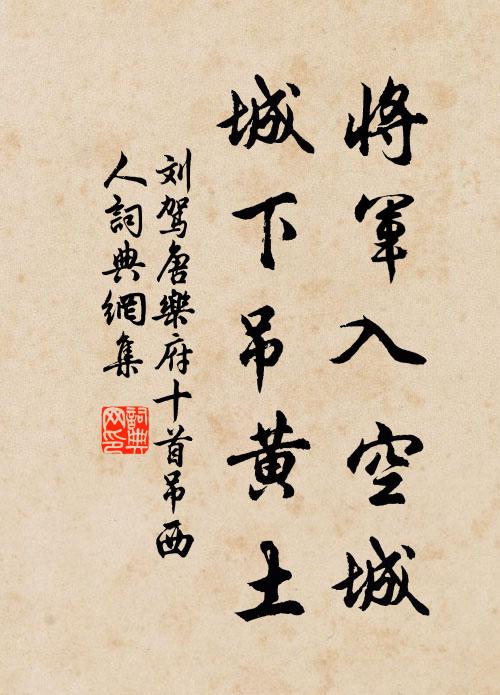 將軍入空城
城下吊黃土
刘駕唐樂府十首吊西
人詞典網集
詞典
网印